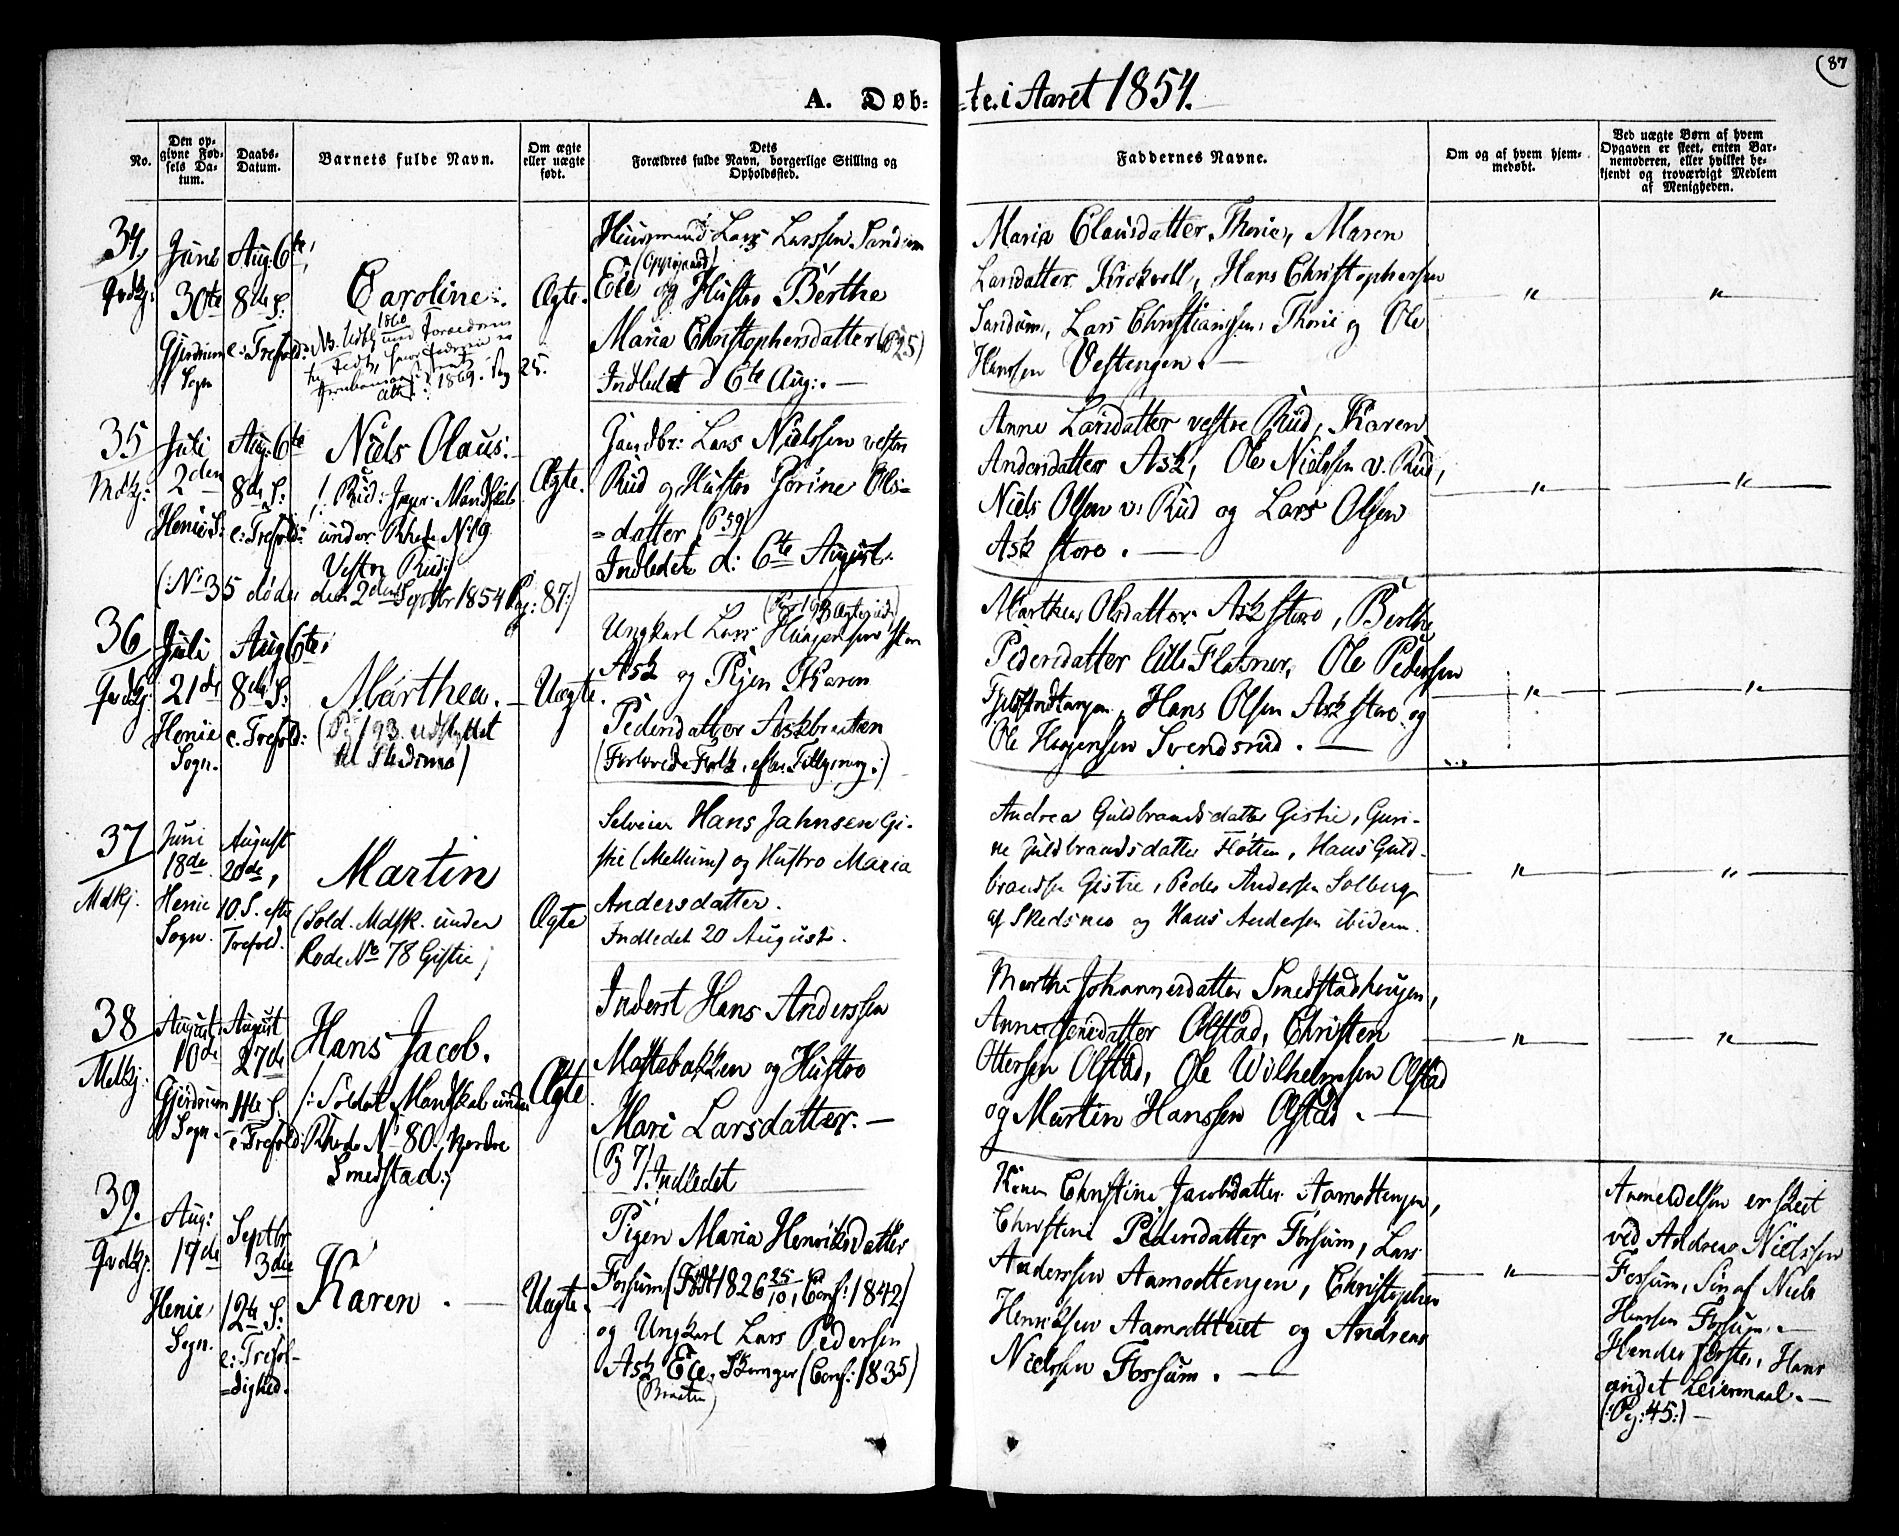 87
A. Døb=
=te i Aaret 1854.
No.
Den op-
givne Fød-
sels Da-
tum.
Daabs-
Datum.
Barnets fulde Navn.
Om ægte
eller uægte
født.
Dets
Forældres fulde Navn, borgerlige Stilling og
Opholdssted.
Faddernes Navne.
Om og af hvem hjem-
medøbt.
Ved uægte Børn af hvem
Opgaven er skeet, enten Bar-
nemoderen, eller hvilket be-
kjendt og troværdigt Medlem
af Menigheden.
34
Qvdkj:
Juni
30te
Gjerdrum
Sogn
Aug: 6te,
8de S:
e: Trefold:
Caroline.
1860
1869. Pag 25.
Ægte.
Huusmand Lars Larssen Sandum
(Oppigaard)
Eie og Hustro Berthe
Maria Christophersdatter (P 25)
Indledet d 6te Aug:. —
Maria Clausdatter Thorie, Maren
Larsdatter Kirkvold, Hans Christophersen
Sandum, Lars Christianssen Thorie og Ole
Hanssen Vestengen. —
"
"
35
Mdkj:
Juli
2den
Henie S:
Aug: 6te
8de S:
e: Trefold:
Niels Olaus.
/: Rud: Inger: Mandskab
under Rhode No 19
Vestre Rud:/
(: No 35 døde den 2den Septbr 1854 Pag: 87:)
Ægte.
Gaardbr: Lars Nielssen vestre
Rud og Hustro Jørine Ols=
=datter (P 59)
Indledet d: 6te August.
Anne Larsdatter vestre Rud, Karen
Andersdatter Ask, Ole Nielssen v. Rud,
Niels Olsen v: Rud og Lars Olsen
Ask store. —
"
"
36
Qvdkj:
Juli
21de
Henie
Sogn.
Aug 6te,
8de S:
e. Trefold:
Marthea. —
(Pag 193. udflyttet
til Skedsmo)
Uægte.
Ungkarl Lars Haagensen store
Ask og Pigen Karen
Pedersdatter Askbraaten
(Forlovede Folk, efter Tillysning:)
Marthea Olsdatter Ask store, Berthe
Pedersdatter lille Flatner, Ole Pedersen
Hans Olsen Ask store og
Ole Haagensen Svendsrud. —
"
"
37
Mdkj.
Juni
18de
Henie
Sogn.
August
20de,
10. S. efter
Trefold.
Martin
(Sold. Mdsk. under
Rode No 78 Gistie)
Ægte
Selveier Hans Jahnsen Gi-
stie (Mellum) og Hustro Maria
Andersdatter.
Indledet 20 August.
Andrea Guldbrandsdatter Gistie, Guri-
ne Guldbrandsdatter Flotten, Hans Guld-
brandsen Gistie, Peder Andersen Solberg
af Skedsmo og Hans Andersen ibidem.
"
"
38
Mdkj:
August
10de
Gjerdrum
Sogn.
August
27de
11te S.
e. Trefold:
Hans Jacob.
/: Soldat Mandskab under
Rhode No 80. Nordre
Smedstad:/
Ægte
Inderst Hans Anderssen
Mastebakken og Hustro
Mari Larsdatter. —
(P 7). Indledet
Marthe Johannesdatter Smedstadhaugen,
Anne Jensdatter Olstad, Christen
Ottersen Olstad, Ole Wilhelmsen Olstad
og Martin Hanssen Olstad. —
"
"
39.
Qvdkj.
Aug:
17de
Henie
Sogn.
Septbr
3die
12te S:
e: Trefol-
=dighed.
Karen. —
Uægte.
Pigen Maria Henriksdatter
Fossum (Født 1826 25/10, Conf: 1842)
og Ungkarl Lars Pedersen
Ask Eie, Skomager (Conf: 1835)
(Braaten)
Karen Christine Jacobsdatter Aamodtengen,
Christine Pedersdatter Fossum, Lars
Anderssen Aamodtengen, Christopher
Henriksen Aamodtleiet og Andreas
Nielssen Fossum. —
"
Anmeldelsen er skeet
ved Andreas Nielssen
Fossum, Søn af Niels
Hanssen Fossum. —
Hendes første, Hans
andet Leiermaal. —
(: Pag: 45:) —